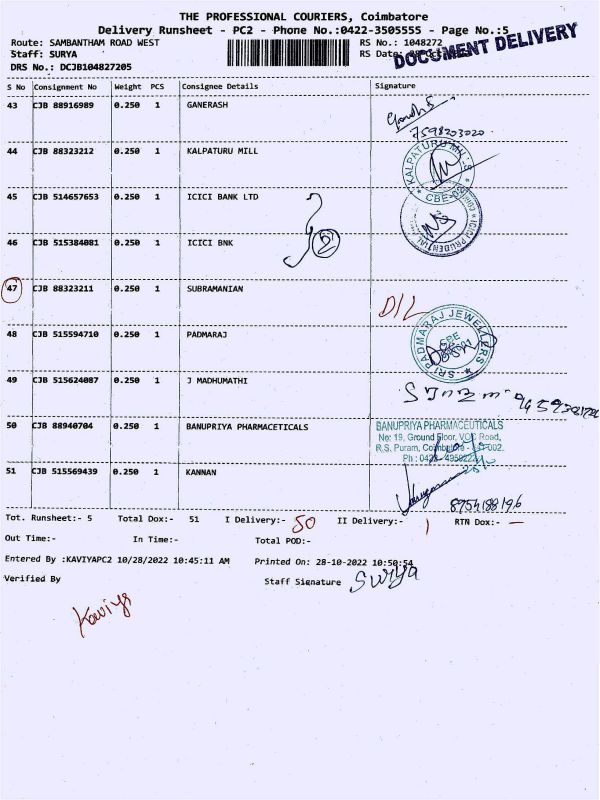 THE PROFESSIONAL COURIERS, Coimbatore
Delivery Runsheet - PC2 - Phone No.:0422-3505555 - Page No.:5
Route: SAMBANTHAM ROAD WEST RS No.: 1048272
Staff: SURYA RS Date:
DRS No.: DCJB104827205
DOCUMENT DELIVERY
S No Consignment No Weight PCS Consignee Details Signature
43 CJB 88916989 0.250 1 GANERASH
7598203020
44 CJB 88323212 0.250 1 KALPATURU MILL
KALPATURU MILLS
CBE-02
45 CJB 514657653 0.250 1 ICICI BANK LTD
ICICI PRUDENTIAL
46 CJB 515384081 0.250 1 ICICI BNK
47 CJB 88323211 0.250 1 SUBRAMANIAN
D/L
48 CJB 515594710 0.250 1 PADMARAJ
SRI PADMARAJ JEWELLERS
49 CJB 515624087 0.250 1 J MADHUMATHI
50 CJB 88940704 0.250 1 BANUPRIYA PHARMACETICALS
BANUPRIYA PHARMACEUTICALS
No: 19, Ground Floor, VOC Road,
R.S. Puram, Coimbatore - 002.
Ph : 0422
51 CJB 515569439 0.250 1 KANNAN
8754188196
Tot. Runsheet:- 5 Total Dox:- 51 I Delivery:- 50 II Delivery:- 1 RTN Dox:- —
Out Time:- In Time:- Total POD:-
Entered By :KAVIYAPC2 10/28/2022 10:45:11 AM Printed On: 28-10-2022 10:50:54
Verified By Staff Signature Surya
Kaviya